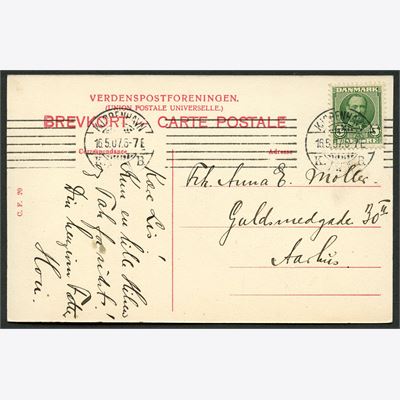 VERDENSPOSTFORENINGEN.
(UNION POSTALE UNIVERSELLE.)
BREVKORT. CARTE POSTALE
Correspondance. Adresse
KJØBENHAVN
16.5.07. 6-7 E
K. B
KJØBENHAVN
16.5.07. 6-7 E
K. B
DANMARK
5 5
ØRE
Frk. Anna E. Möller.
Guldsmedgade 30
Aarhus
Kære
Kun en lille Hilsen
og Tak for sidst!
Din hengivne
C. F. 20